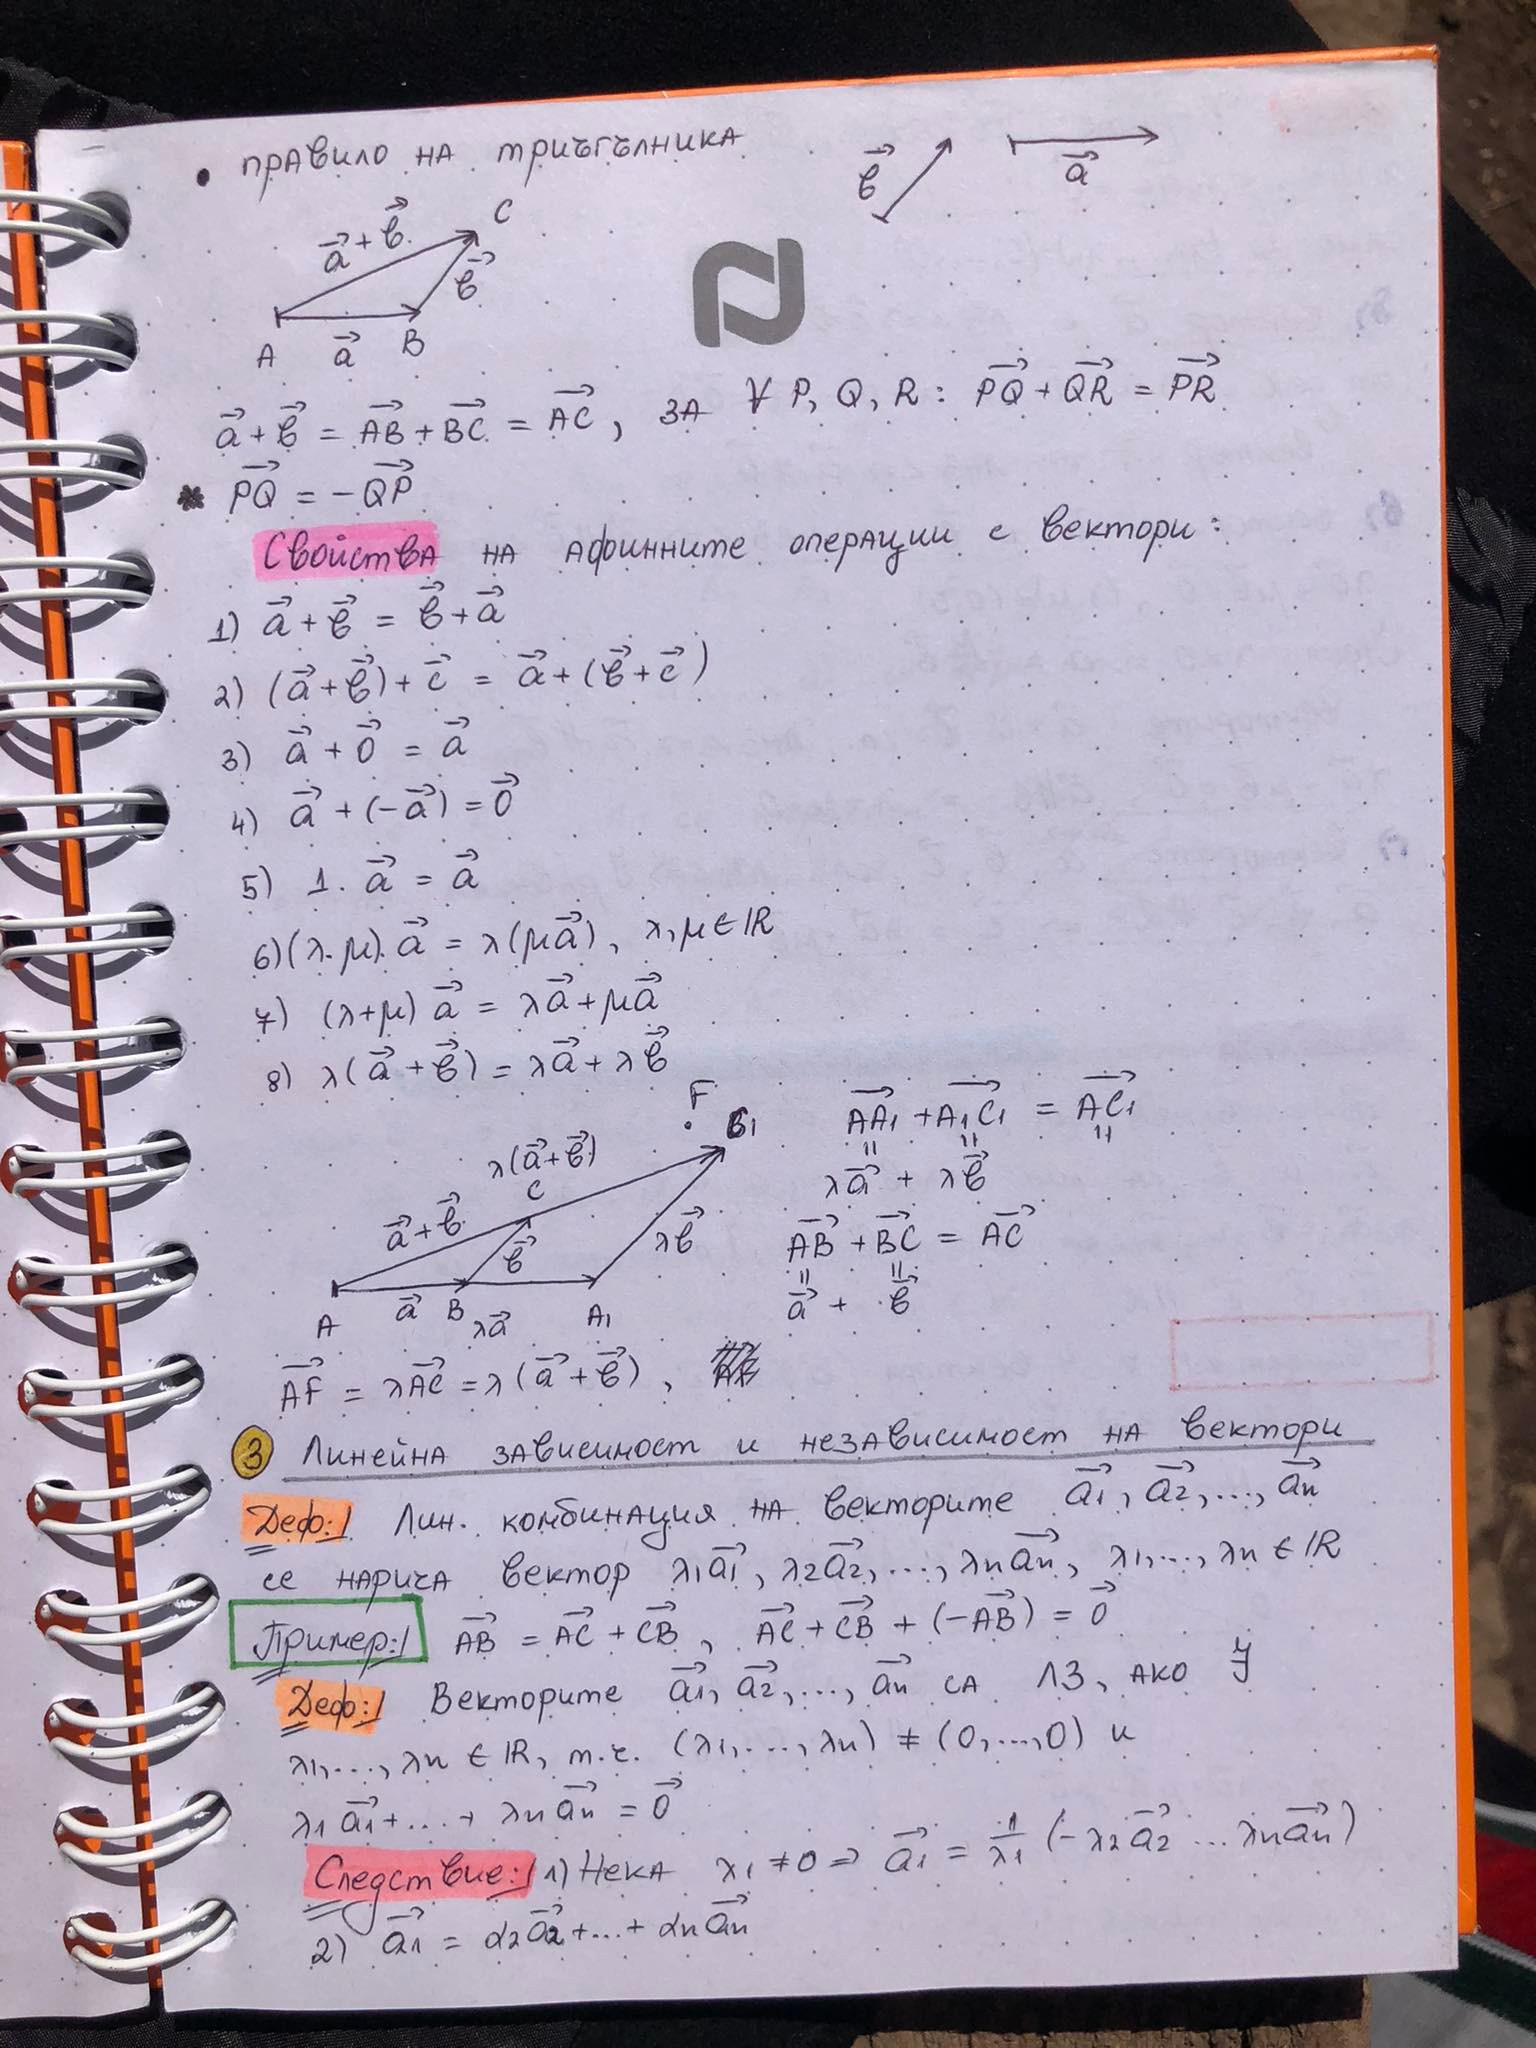 • правило на триъгълника
b⃗ a⃗
a⃗ + b⃗ C
b⃗
A a⃗ B
a⃗ + b⃗ = AB⃗ + BC⃗ = AC⃗ , за ∀ P, Q, R : PQ⃗ + QR⃗ = PR⃗
* PQ⃗ = - QP⃗
Свойства на афинните операции с вектори :
1) a⃗ + b⃗ = b⃗ + a⃗
2) (a⃗ + b⃗) + c⃗ = a⃗ + (b⃗ + c⃗)
3) a⃗ + 0⃗ = a⃗
4) a⃗ + (-a⃗) = 0⃗
5) 1. a⃗ = a⃗
6) (λ.μ). a⃗ = λ(μa⃗) , λ, μ ∈ ℝ
7) (λ+μ) a⃗ = λa⃗ + μa⃗
8) λ(a⃗ + b⃗) = λa⃗ + λb⃗
F
C₁
λ(a⃗ + b⃗)
C
a⃗ + b⃗
b⃗ λb⃗
A a⃗ B λa⃗ A₁
AA₁⃗ + A₁C₁⃗ = AC₁⃗
= = =
λa⃗ + λb⃗
AB⃗ + BC⃗ = AC⃗
= =
a⃗ + b⃗
AF⃗ = λAC⃗ = λ(a⃗ + b⃗) ,
3 Линейна зависимост и независимост на вектори
Деф:| Лин. комбинация на векторите a₁⃗, a₂⃗, ..., aₙ⃗
се нарича вектор λ₁a₁⃗, λ₂a₂⃗, ..., λₙaₙ⃗, λ₁, ..., λₙ ∈ ℝ
Пример:| AB⃗ = AC⃗ + CB⃗ , AC⃗ + CB⃗ + (-AB⃗) = 0⃗
Деф:| Векторите a₁⃗, a₂⃗, ..., aₙ⃗ са ЛЗ, ако ∃
λ₁, ..., λₙ ∈ ℝ, т.ч. (λ₁, ..., λₙ) ≠ (0, ..., 0) и
λ₁a₁⃗ + ... + λₙaₙ⃗ = 0⃗
Следствие:| 1) Нека λ₁ ≠ 0 ⇒ a₁⃗ = 1/λ₁ (-λ₂a₂⃗ ... λₙaₙ⃗)
2) a₁⃗ = α₂a₂⃗ + ... + αₙaₙ⃗